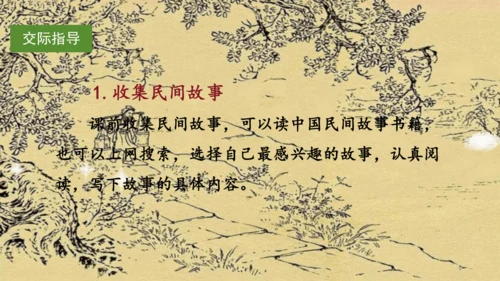 交际指导
1.收集民间故事
课前收集民间故事，可以读中国民间故事书籍，
也可以上网搜索，选择自己最感兴趣的故事，认真阅
读，写下故事的具体内容。